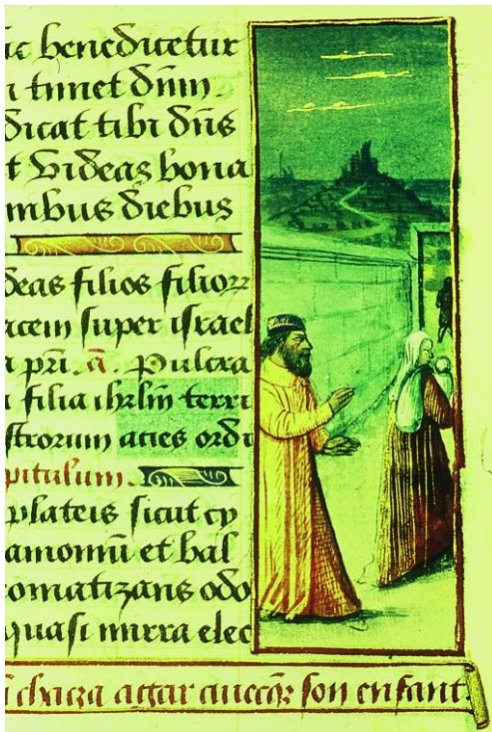 ic benedicetur
i timet dñm.
dicat tibi dñs
t Videas bona
mbus diebus
deas filios filiorꝝ
acem super israel
a pri. a. Pulcra
i filia ihrlm terri
strorum acies ordi
pitulum.
plateis sicut cy
amomū et bal
omatizans odo
quasi mirra elec
chaza agar avecqꝫ son enfant